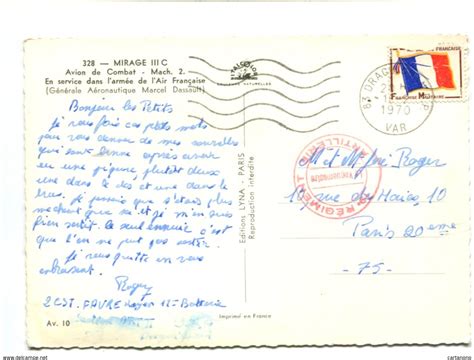 328 - MIRAGE III C
Avion de Combat - Mach. 2.
En service dans l'armée de l'Air Française
(Générale Aéronautique Marcel Dassault)
Bonjour les Petits
je vous fais ces petits mots
pour vous donner de mes nouvelles
qui sont bonne après avoir
eu une piqure plutôt deux
une dans le dos et une dans le
bras. je pensais que s'étais plus
méchant que sa et je m'en suis
bien sortit. Le seul ennuie c'est
que l'on ne peut pas sortir.
je vous quitte en vous
embrassant.
Roger
2C ST. FAVRE Roger 12e Batterie
Av. 10
Editions LYNA - PARIS
Reproduction interdite
Imprimé en France
FRANÇAISE
FM
DRAGUIGNAN
1970
VAR
REGIMENT
ARTILLERIE
M et Mme José Roger
17 rue des Haies 10
Paris 20eme
-75-
www.delcampe.net
cartanono